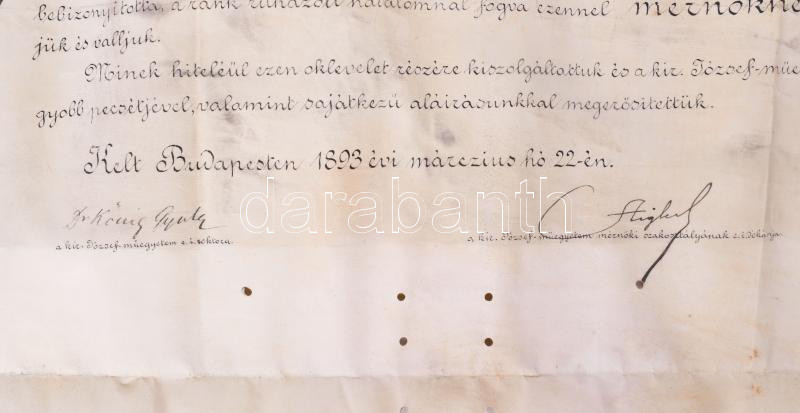 bebizonyította, a ránk ruházott hatalomnál fogva ezennel mérnökne
jük és valljuk.
Minek hiteléül ezen oklevelet részére kiszolgáltattuk és a kir. József-műe
gyobb pecsétjével, valamint sajátkezű aláirásunkkal megerősitettük.
Kelt Budapesten 1893 évi márczius hó 22-én.
Dr König Gyula
a kir. József-műegyetem e.i. rektora.
a kir. József-műegyetem mérnöki szakosztályának e.i. dékánja.
darabanth